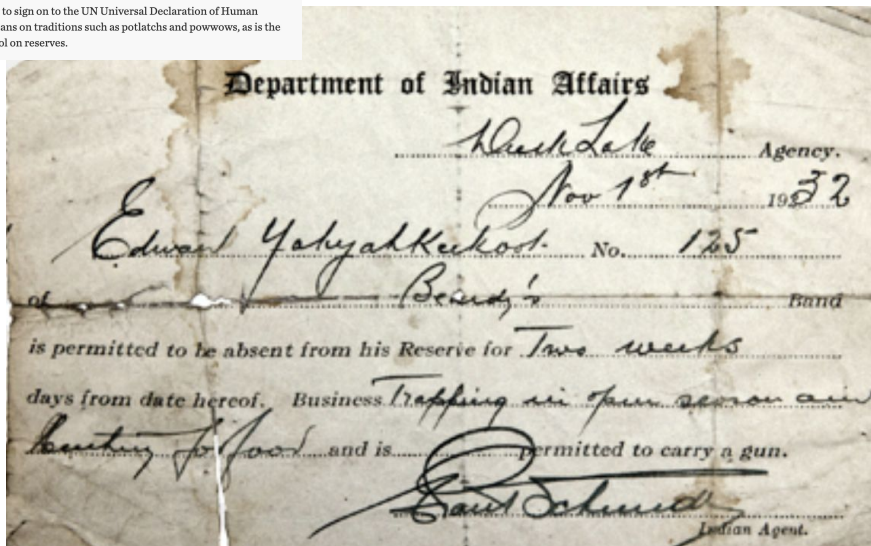 to sign on to the UN Universal Declaration of Human
ans on traditions such as potlatchs and powwows, as is the
ol on reserves.
Department of Indian Affairs
Duck Lake Agency.
Nov 1st 1932
Edward Yahyahkeekoot No. 125
of Beardy's Band
is permitted to be absent from his Reserve for Two weeks
days from date hereof. Business Trapping in open season and
hunting for food and is permitted to carry a gun.
Schmidt
Indian Agent.